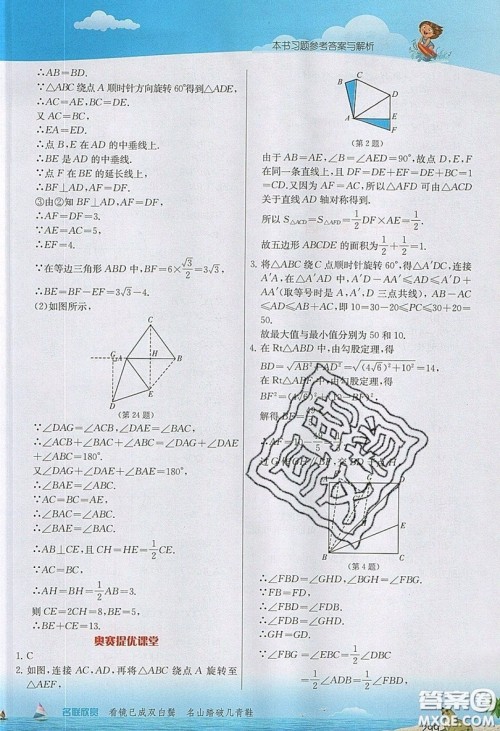 本书习题参考答案与解析
∴AB=BD.
∵△ABC绕点A顺时针方向旋转60°得到△ADE,
∴AC=AE,DE=BC.
又AC=BC,
∴EA=ED.
∴点B,E在AD的中垂线.
∴BE是AD的中垂线.
∵点F在BE的延长线上,
∴BF⊥AD,AF=DF.
③由②知BF⊥AD,AF=DF.
∴AF=DF=3.
∵AE=AC=5,
∴EF=4.
∵在等边三角形ABD中,BF=6×√3/2=3√3,
∴BE=BF-EF=3√3-4.
(2)如图所示,
C
G A H B
D E
(第24题)
∵∠DAG=∠ACB,∠DAE=∠BAC.
∴∠DAE+∠ABC+∠BAC=∠DAG+∠DAE+∠ABC=180°.
又∠DAG+∠DAE+∠BAE=180°,
∴∠BAE=∠ABC.
∵AC=BC=AE,
∴∠BAC=∠ABC.
∴∠BAE=∠BAC.
∴AB⊥CE,且CH=HE=1/2CE.
∵AC=BC,
∴AH=BH=1/2AB=5.
则CE=2CH=8,BE=5,
∴BE+CE=13.
奥赛提优课堂
1. C
2. 如图,连接AC,AD,再将△ABC绕点A旋转至△AEF,
B C
D
A E
F
(第2题)
由于AB=AE,∠B=∠AED=90°,故点D,E,F在同一条直线上,且DF=DE+EF=DE+BC=1=CD.又因为AF=AC,所以△ADF与△ADC关于直线AD轴对称得到.
所以S△ACD=S△ADF=1/2DF×AE=1/2.
故五边形ABCDE的面积为1/2+1/2=1.
3. 将△ABC绕C点顺时针旋转60°,得△A′DC,连接A′A,在△A′DA中,A′D-A′A≤DA≤A′D+AA′(取等号时是A,A′,D三点共线),AB-AC≤AD≤AB+AC,即10=30-20≤PC≤30+20=50.
故最大值与最小值分别为50和10.
4. 在Rt△ABD中,由勾股定理,得
BD=√AB²+AD²=√(4√6)²+10²=14,
在Rt△ABF中,由勾股定理,得
(第4题)
∴∠FBD=∠GHD,∠BGH=∠FBG.
∵∠FBD=∠FBE,
∴∠FBG=∠FBD.
名联欣赏 看镜已成双白鬓 名山踏破几青鞋
答案圈
MXQE.COM